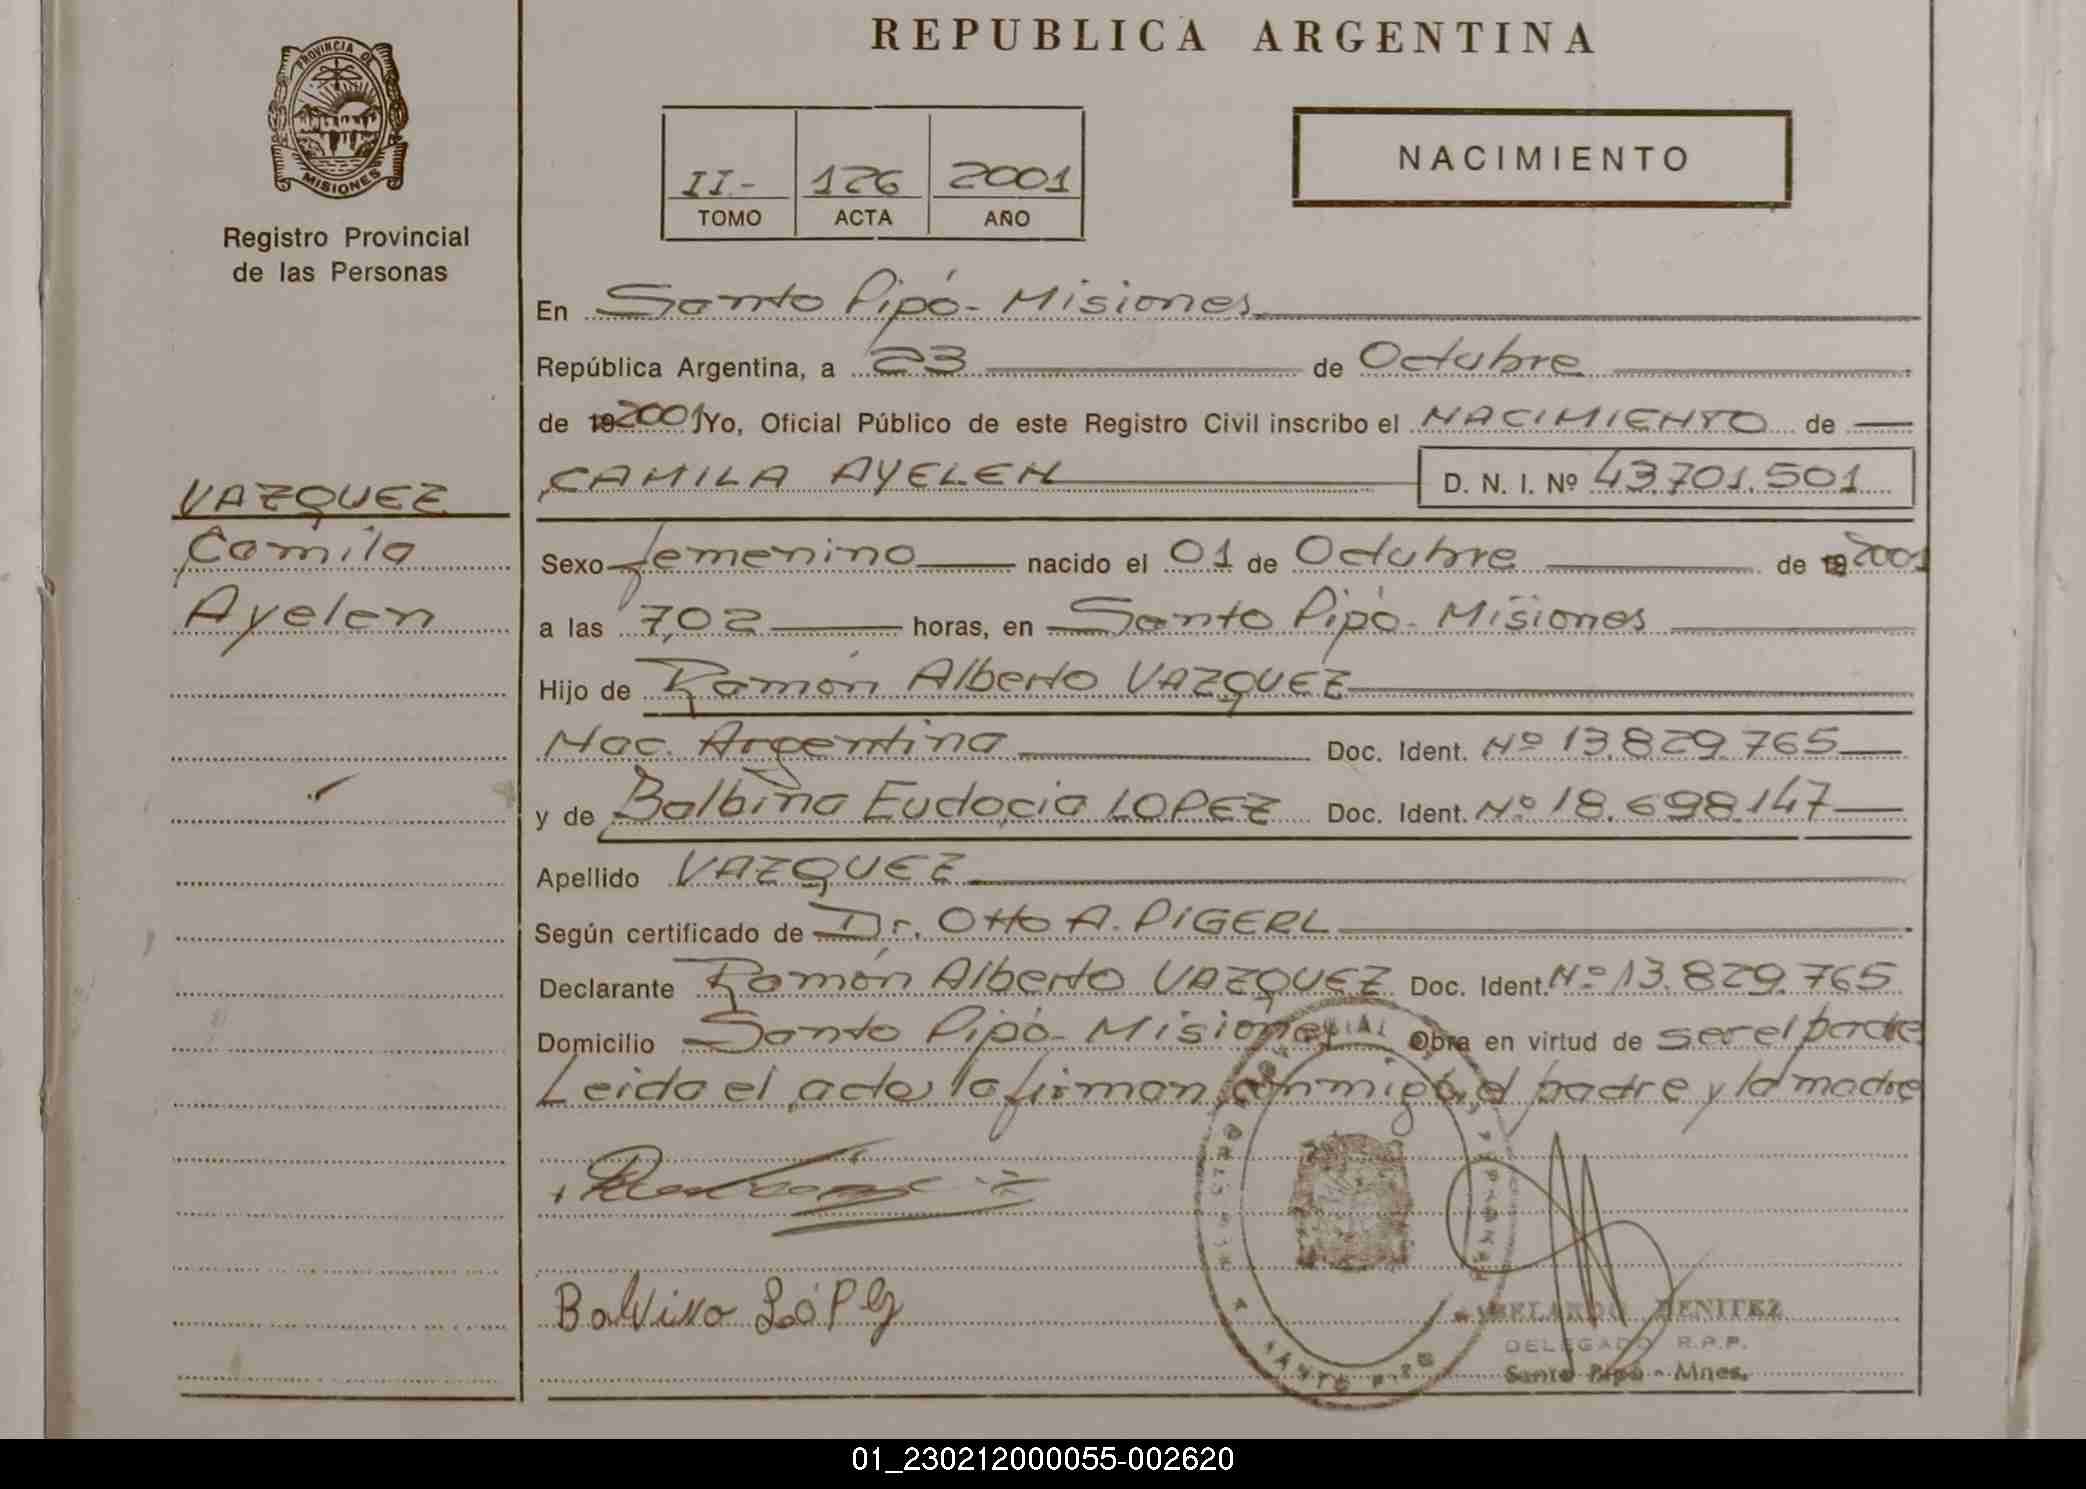 REPUBLICA ARGENTINA
PROVINCIA DE
MISIONES
Registro Provincial
de las Personas
II- 126 2001
TOMO ACTA AÑO
NACIMIENTO
En Santo Pipó - Misiones
República Argentina, a 23 de Octubre
de 19 2001 Yo, Oficial Público de este Registro Civil inscribo el NACIMIENTO de
CAMILA AYELEN D. N. I. Nº 43.701.501
VAZQUEZ
Camila
Ayelen
Sexo femenino nacido el 01 de Octubre de 19 2001
a las 7,02 horas, en Santo Pipó - Misiones
Hijo de Ramón Alberto VAZQUEZ
Nac. Argentina Doc. Ident. Nº 13.829.765
y de Balbina Eudocia LOPEZ Doc. Ident. Nº 18.698.147
Apellido VAZQUEZ
Según certificado de Dr. Otto A. PIGERL
Declarante Ramón Alberto VAZQUEZ Doc. Ident. Nº 13.829.765
Domicilio Santo Pipó - Misiones Obra en virtud de ser el padre
Leida el acta, la firman conmigo, el padre y la madre
LóPez
BENITEZ
DELEGADO R.P.P.
Santo Pipó - Mnes.
SANTO PIPO
01_230212000055-002620